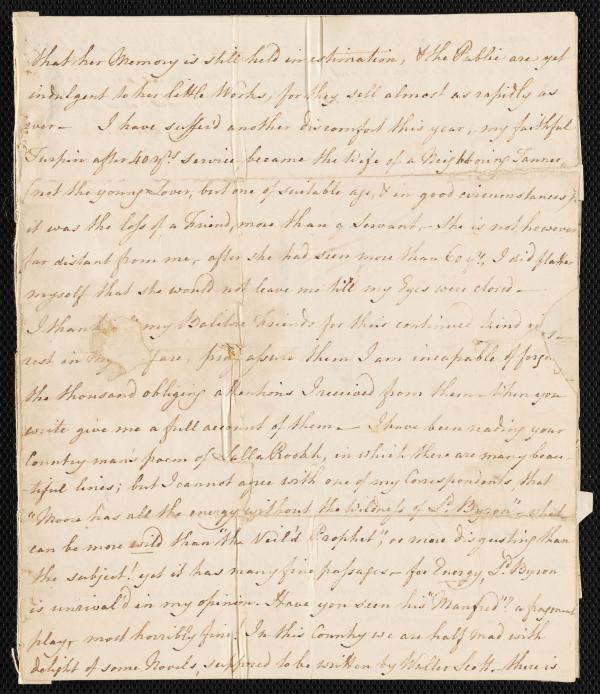 that her Memory is still held in estimation, & the Public are yet
indulgent to her little Works, for they sell almost as rapidly as
ever – I have sufferd another discomfort this year, my faithful
Turpin after 40 yrs service became the Wife of a Neighbouring Tanner,
(not the young Lover, but one of suitable age, & in good circumstances)
it was the loss of a Friend, more than a Servant, – She is not however
far distant from me, – after she had seen more than 60 yrs, I did flatter
myself that she would not leave me till my Eyes were closed –
I thank my Friends for their continued kind
rest in my fare, pray assure them I am incapable of
the thousand obliging attentions I received from them – when you
write give me a full account of them – I have been reading your
Countryman's poem of Lalla Rookh, in which there are many beau-
tiful lines; but I cannot agree with one of my Corespondents, that
"Moore has all the energy without the Wildness of Ld. Byron" – what
can be more wild than "the Veil'd Prophet", or more disgusting than
the subject! yet it has many fine passages – for Energy, Ld. Byron
is unrival'd in my opinion. Have you seen his "Manfred"? a fragment
play, most horribly fine! In this Country we are half mad with
delight of some Novels, supposed to be written by Walter Scott, – there is